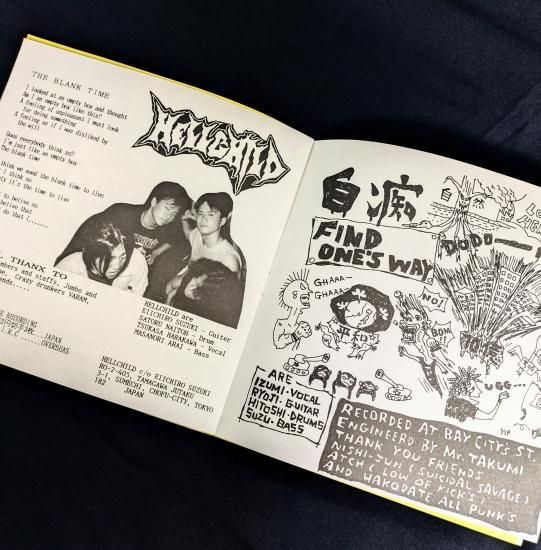 THE BLANK TIME
I looked at an empty box and thought
Am I an empty box like this?
A feeling of unpleasant I must look
for doing something
A feeling as if I was disliked by
the will
Does everybody think so?
I'm just like an empty box
The blank time
think we need the blank time to live
I think so
it's the time to live
to belive so
belive that
do that I......
THANX TO
members and staffs, Jumbo and
Crazy drunkers YARAM,
HELLCHILD
HELLCHILD are
EIICHIRO SUZUKI - Guiter
SATORU NAITOH - Drum
TSUKASA HARAKAWA - Vocal
MASANORI ARAI - Bass
RECORDING
JAPAN
OVERSEAS
HELLCHILD c/o EIICHIRO SUZUKI
RO-2-405, TAMAGAWA JUTAKU
3-1, SOMECHI, CHOFU-CITY, TOKYO
182 JAPAN
白痴
FIND
ONE'S WAY
DODO
GHAAA-
GHAAA-
NO!
BOM!!
UGG...
ARE
IZUMI・VOCAL
RYOJI・GUITAR
HITOSHI・DRUMS
SUZU・BASS
RECORDED AT BAY CITY'S ST
ENGINEERD BY Mr. TAKUMI
THANK YOU FRIENDS
NISHI-JUN (SUICIDAL SAVAGE)
ATCH (LOW OF FICK'S)
AND HAKODATE ALL PUNK'S